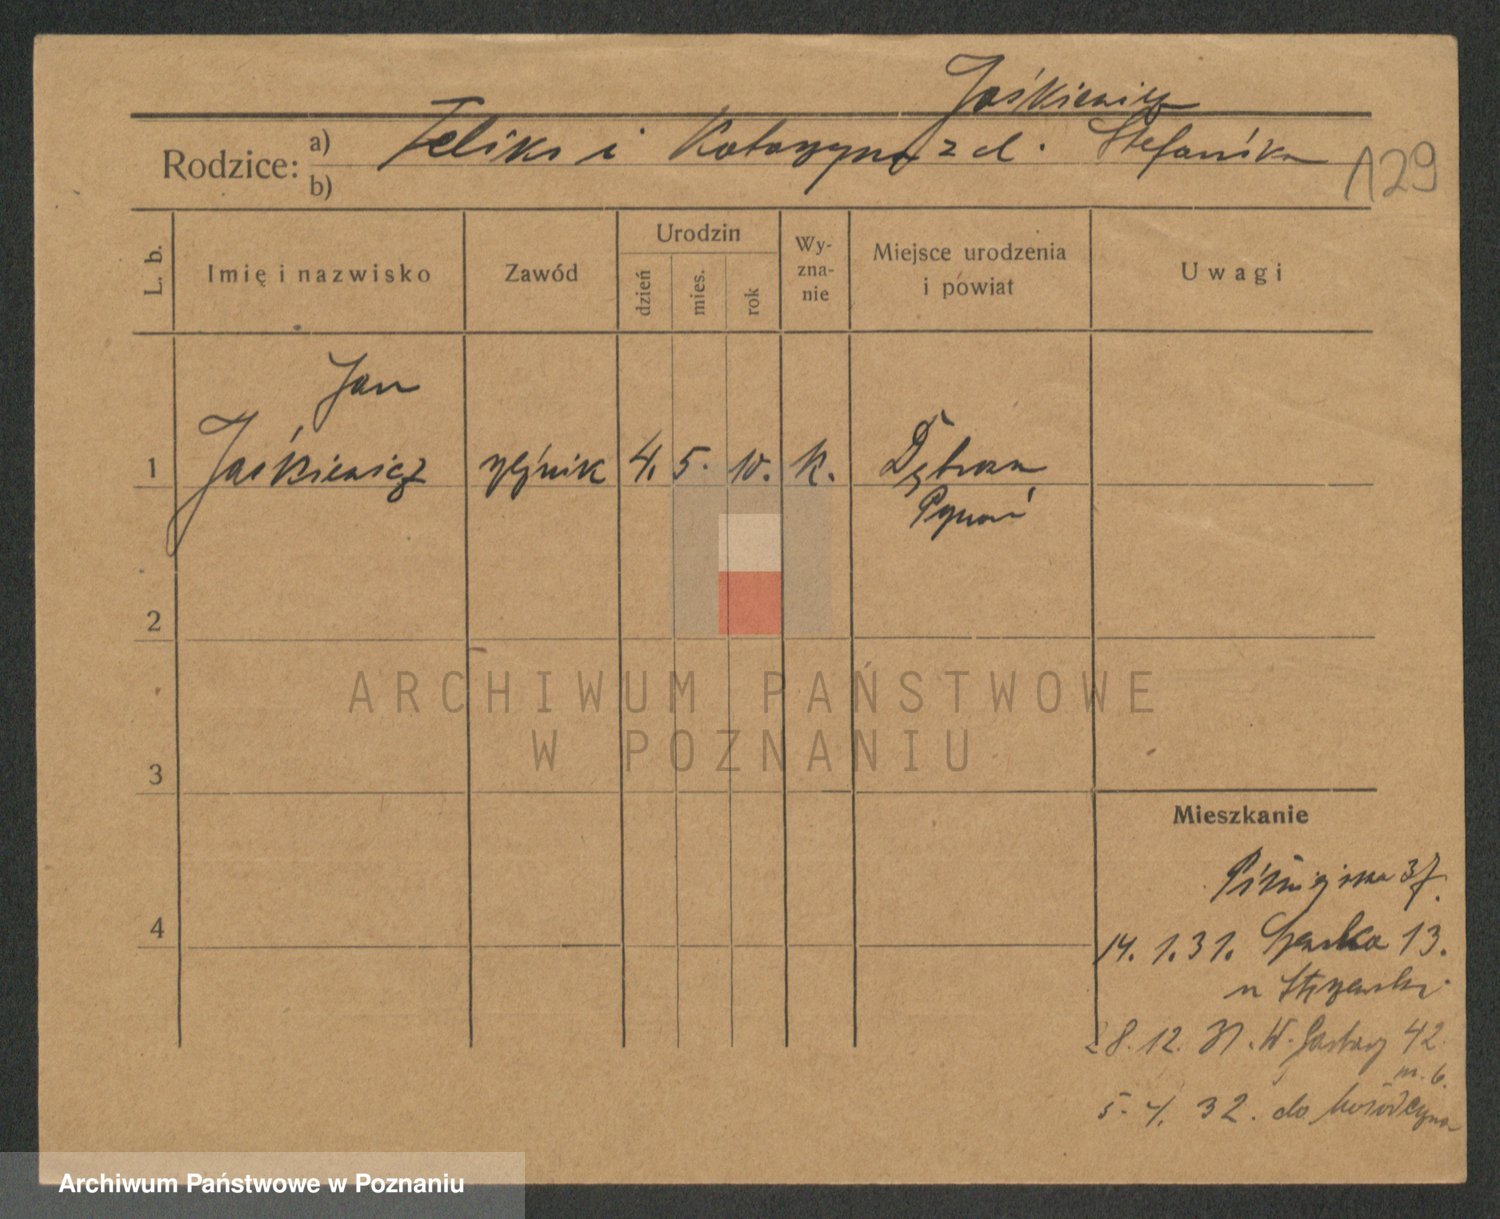 Jaśkiewicz
Rodzice: a) Feliks i Katarzyna z d. Stefańska
b)
129
L. b. Imię i nazwisko Zawód Urodzin dzień mies. rok Wyznanie Miejsce urodzenia i powiat Uwagi
Jan
1 Jaśkiewicz 4. 5. 10. k. Dębowa
2
3
4
Mieszkanie
37.
14. 1. 31. 13.
28. 12. 31. W. Garbary 42.
m. 6.
5. 4. 32. do
ARCHIWUM PAŃSTWOWE
W POZNANIU
Archiwum Państwowe w Poznaniu